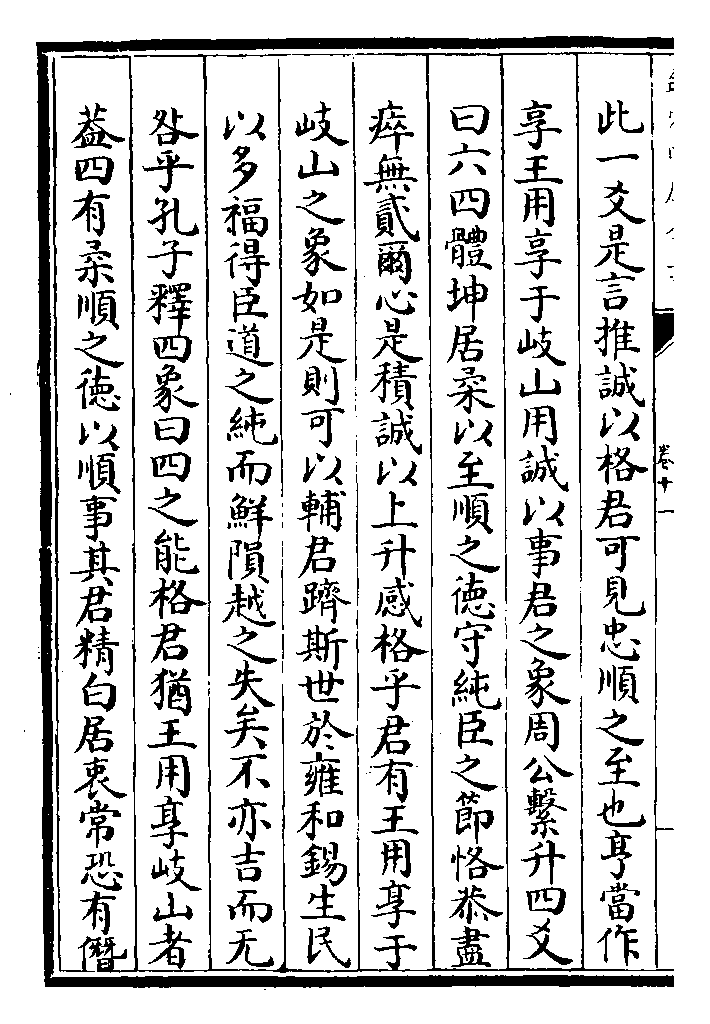 此一爻是言推誠以格君可見忠順之至也亨當作
享王用享于岐山用誠以事君之象周公繫升四爻
曰六四體坤居柔以至順之德守純臣之節恪恭盡
瘁無貳爾心是積誠以上升感格乎君有王用享于
岐山之象如是則可以輔君躋斯世於雍和錫生民
以多福得臣道之純而鮮隕越之失矣不亦吉而无
咎乎孔子釋四象曰四之能格君猶王用享岐山者
葢四有柔順之德以順事其君精白居衷常恐有僭
卷十一